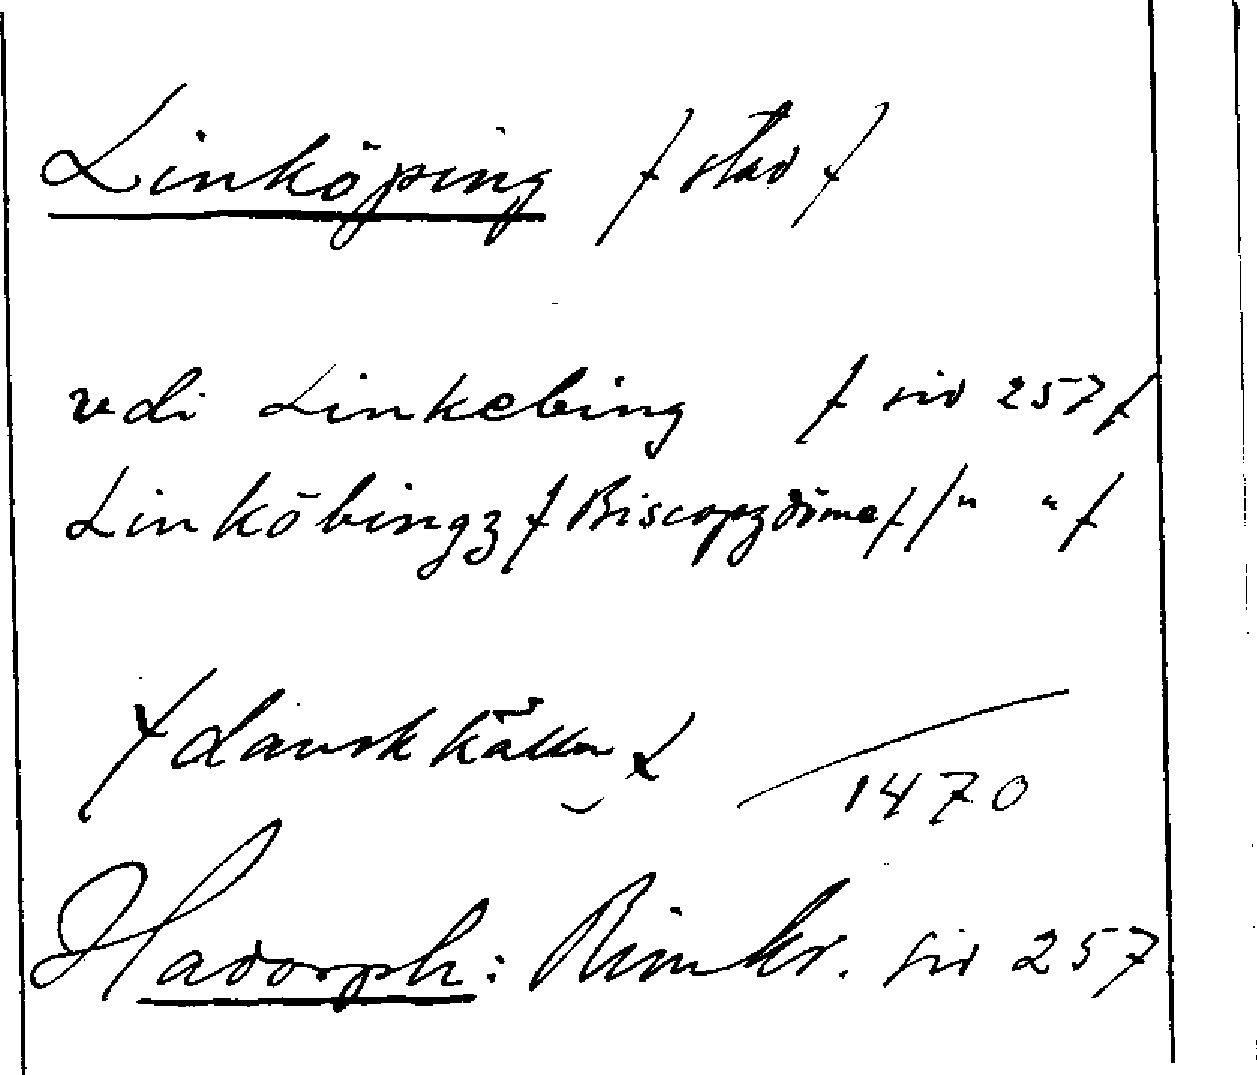 Linköping / stad /
vdi Linkebing / sid 257 /
Linköbingz / Biscopzdöme / / " " /
/ dansk källa / 1470
Hadorph: Rimkr. sid 257